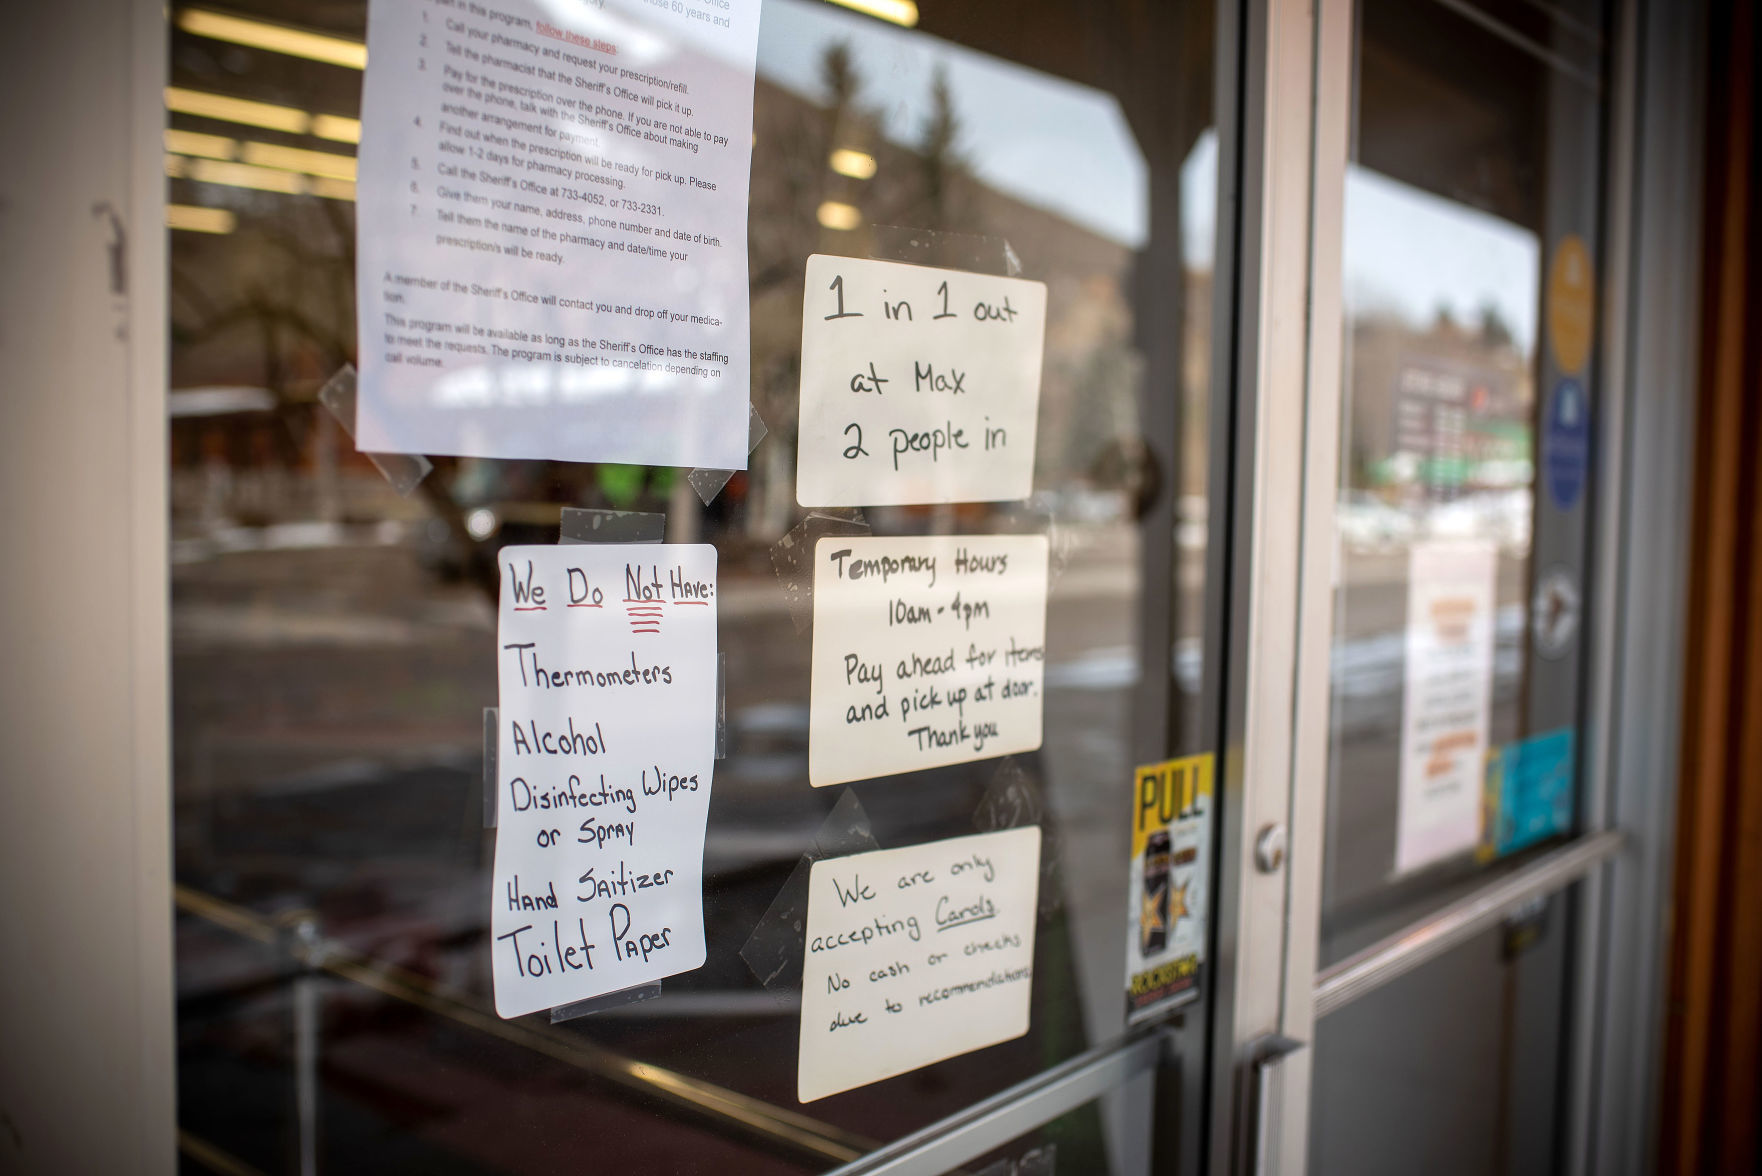 those 60 years and
in this program, follow these steps:
1. Call your pharmacy and request your prescription/refill.
2. Tell the pharmacist that the Sheriff's Office will pick it up.
3. Pay for the prescription over the phone. If you are not able to pay
over the phone, talk with the Sheriff's Office about making
another arrangement for payment.
4. Find out when the prescription will be ready for pick up. Please
allow 1-2 days for pharmacy processing.
5. Call the Sheriff's Office at 733-4052, or 733-2331.
6. Give them your name, address, phone number and date of birth.
7. Tell them the name of the pharmacy and date/time your
prescription/s will be ready.
A member of the Sheriff's Office will contact you and drop off your medica-
tion.
This program will be available as long as the Sheriff's Office has the staffing
to meet the requests. The program is subject to cancelation depending on
call volume.
1 in 1 out
at Max
2 people in
We Do Not Have:
Thermometers
Alcohol
Disinfecting Wipes
or Spray
Hand Saitizer
Toilet Paper
Temporary Hours
10am - 4pm
Pay ahead for items
and pick up at door.
Thank you
We are only
accepting Cards.
No cash or checks
due to recommendations
PULL
ROCKSTAR